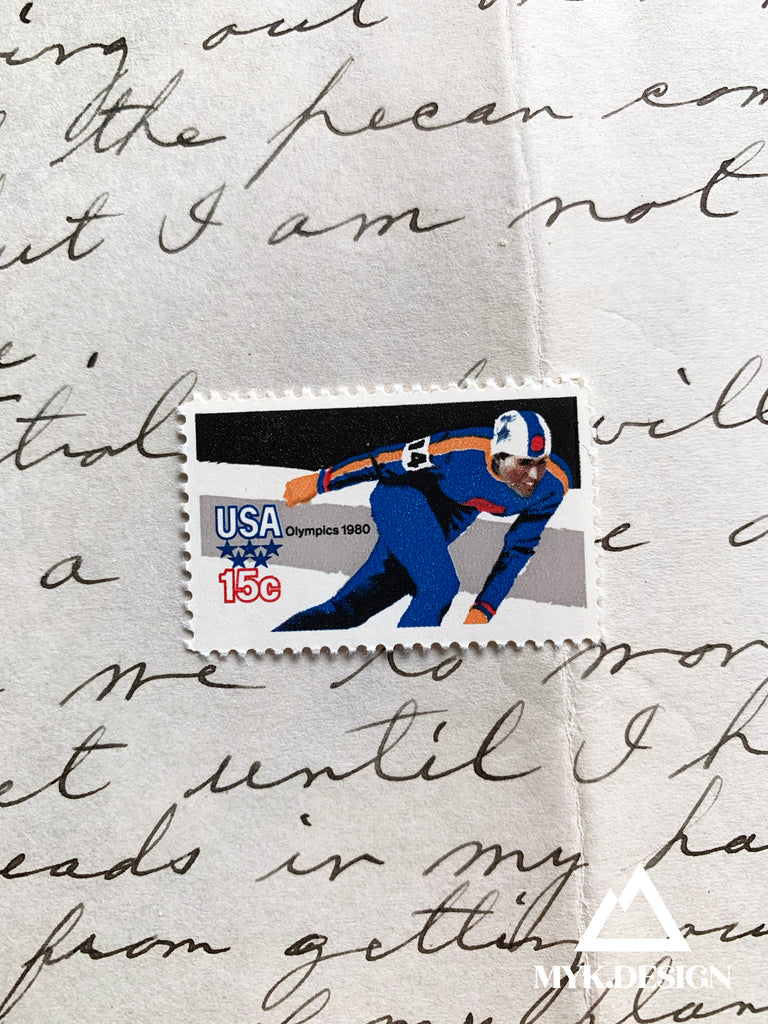 ing out
the pecan com
ut I am not
trial will
14
USA
Olympics 1980
15c
a
me to mor
et until I h
eads in my ha
from getting
MYK.DESIGN